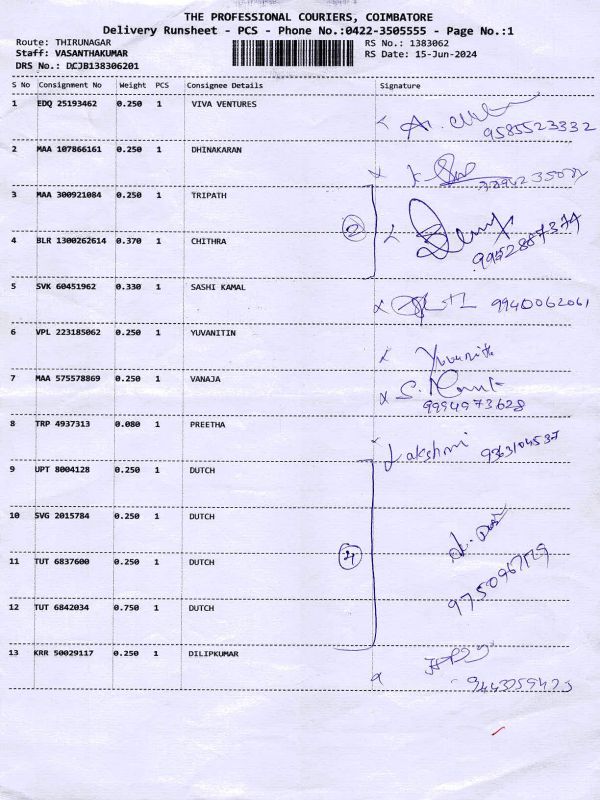 THE PROFESSIONAL COURIERS, COIMBATORE
Delivery Runsheet - PCS - Phone No.:0422-3505555 - Page No.:1
Route: THIRUNAGAR RS No.: 1383062
Staff: VASANTHAKUMAR RS Date: 15-Jun-2024
DRS No.: DCJB138306201
S No Consignment No Weight PCS Consignee Details Signature
1 EDQ 25193462 0.250 1 VIVA VENTURES
9585523332
2 MAA 107866161 0.250 1 DHINAKARAN
3 MAA 300921084 0.250 1 TRIPATH
2
9952867377
4 BLR 1300262614 0.370 1 CHITHRA
5 SVK 60451962 0.330 1 SASHI KAMAL
9940062061
6 VPL 223185062 0.250 1 YUVANITIN
7 MAA 575578869 0.250 1 VANAJA
9994973628
8 TRP 4937313 0.080 1 PREETHA
Lakshmi 9363104537
9 UPT 8004128 0.250 1 DUTCH
10 SVG 2015784 0.250 1 DUTCH
11 TUT 6837600 0.250 1 DUTCH
4
12 TUT 6842034 0.750 1 DUTCH
13 KRR 50029117 0.250 1 DILIPKUMAR